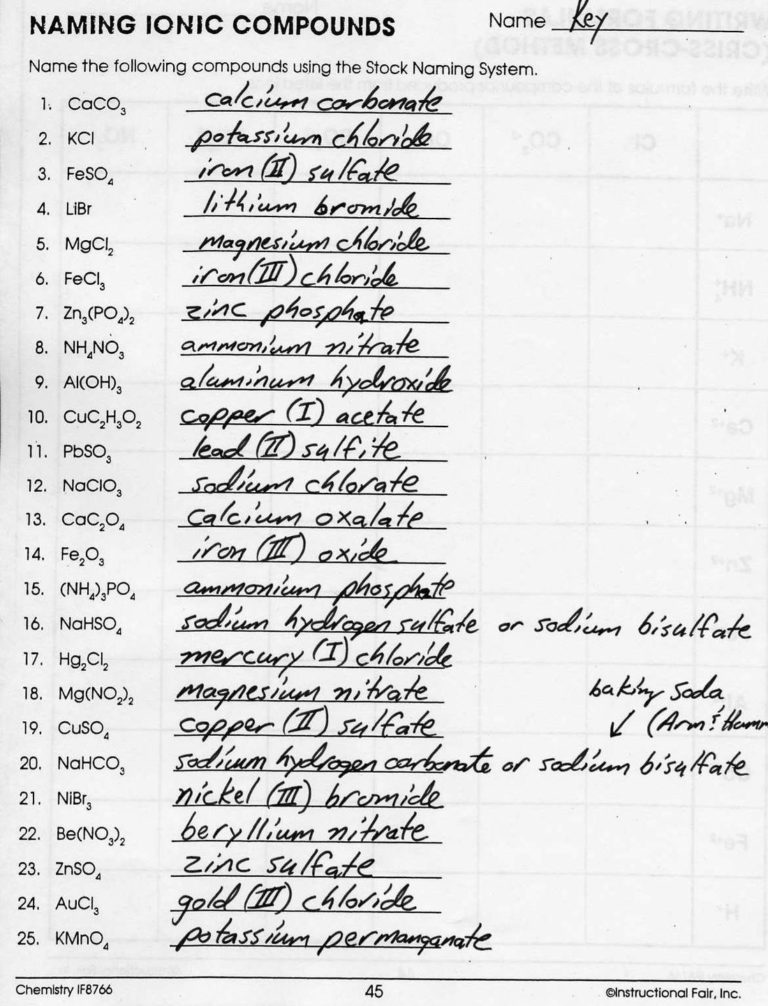 NAMING IONIC COMPOUNDS Name Key
Name the following compounds using the Stock Naming System.
1. CaCO₃ calcium carbonate
2. KCl potassium chloride
3. FeSO₄ iron (II) sulfate
4. LiBr lithium bromide
5. MgCl₂ magnesium chloride
6. FeCl₃ iron (III) chloride
7. Zn₃(PO₄)₂ zinc phosphate
8. NH₄NO₃ ammonium nitrate
9. Al(OH)₃ aluminum hydroxide
10. CuC₂H₃O₂ copper (I) acetate
11. PbSO₃ lead (II) sulfite
12. NaClO₃ sodium chlorate
13. CaC₂O₄ calcium oxalate
14. Fe₂O₃ iron (III) oxide
15. (NH₄)₃PO₄ ammonium phosphate
16. NaHSO₄ sodium hydrogen sulfate or sodium bisulfate
17. Hg₂Cl₂ mercury (I) chloride
18. Mg(NO₂)₂ magnesium nitrate baking soda
19. CuSO₄ copper (II) sulfate ↙ (Arm &
20. NaHCO₃ sodium hydrogen carbonate or sodium bisulfate
21. NiBr₃ nickel (III) bromide
22. Be(NO₃)₂ beryllium nitrate
23. ZnSO₄ zinc sulfate
24. AuCl₃ gold (III) chloride
25. KMnO₄ potassium permanganate
Chemistry IF8766 45 ©Instructional Fair, Inc.